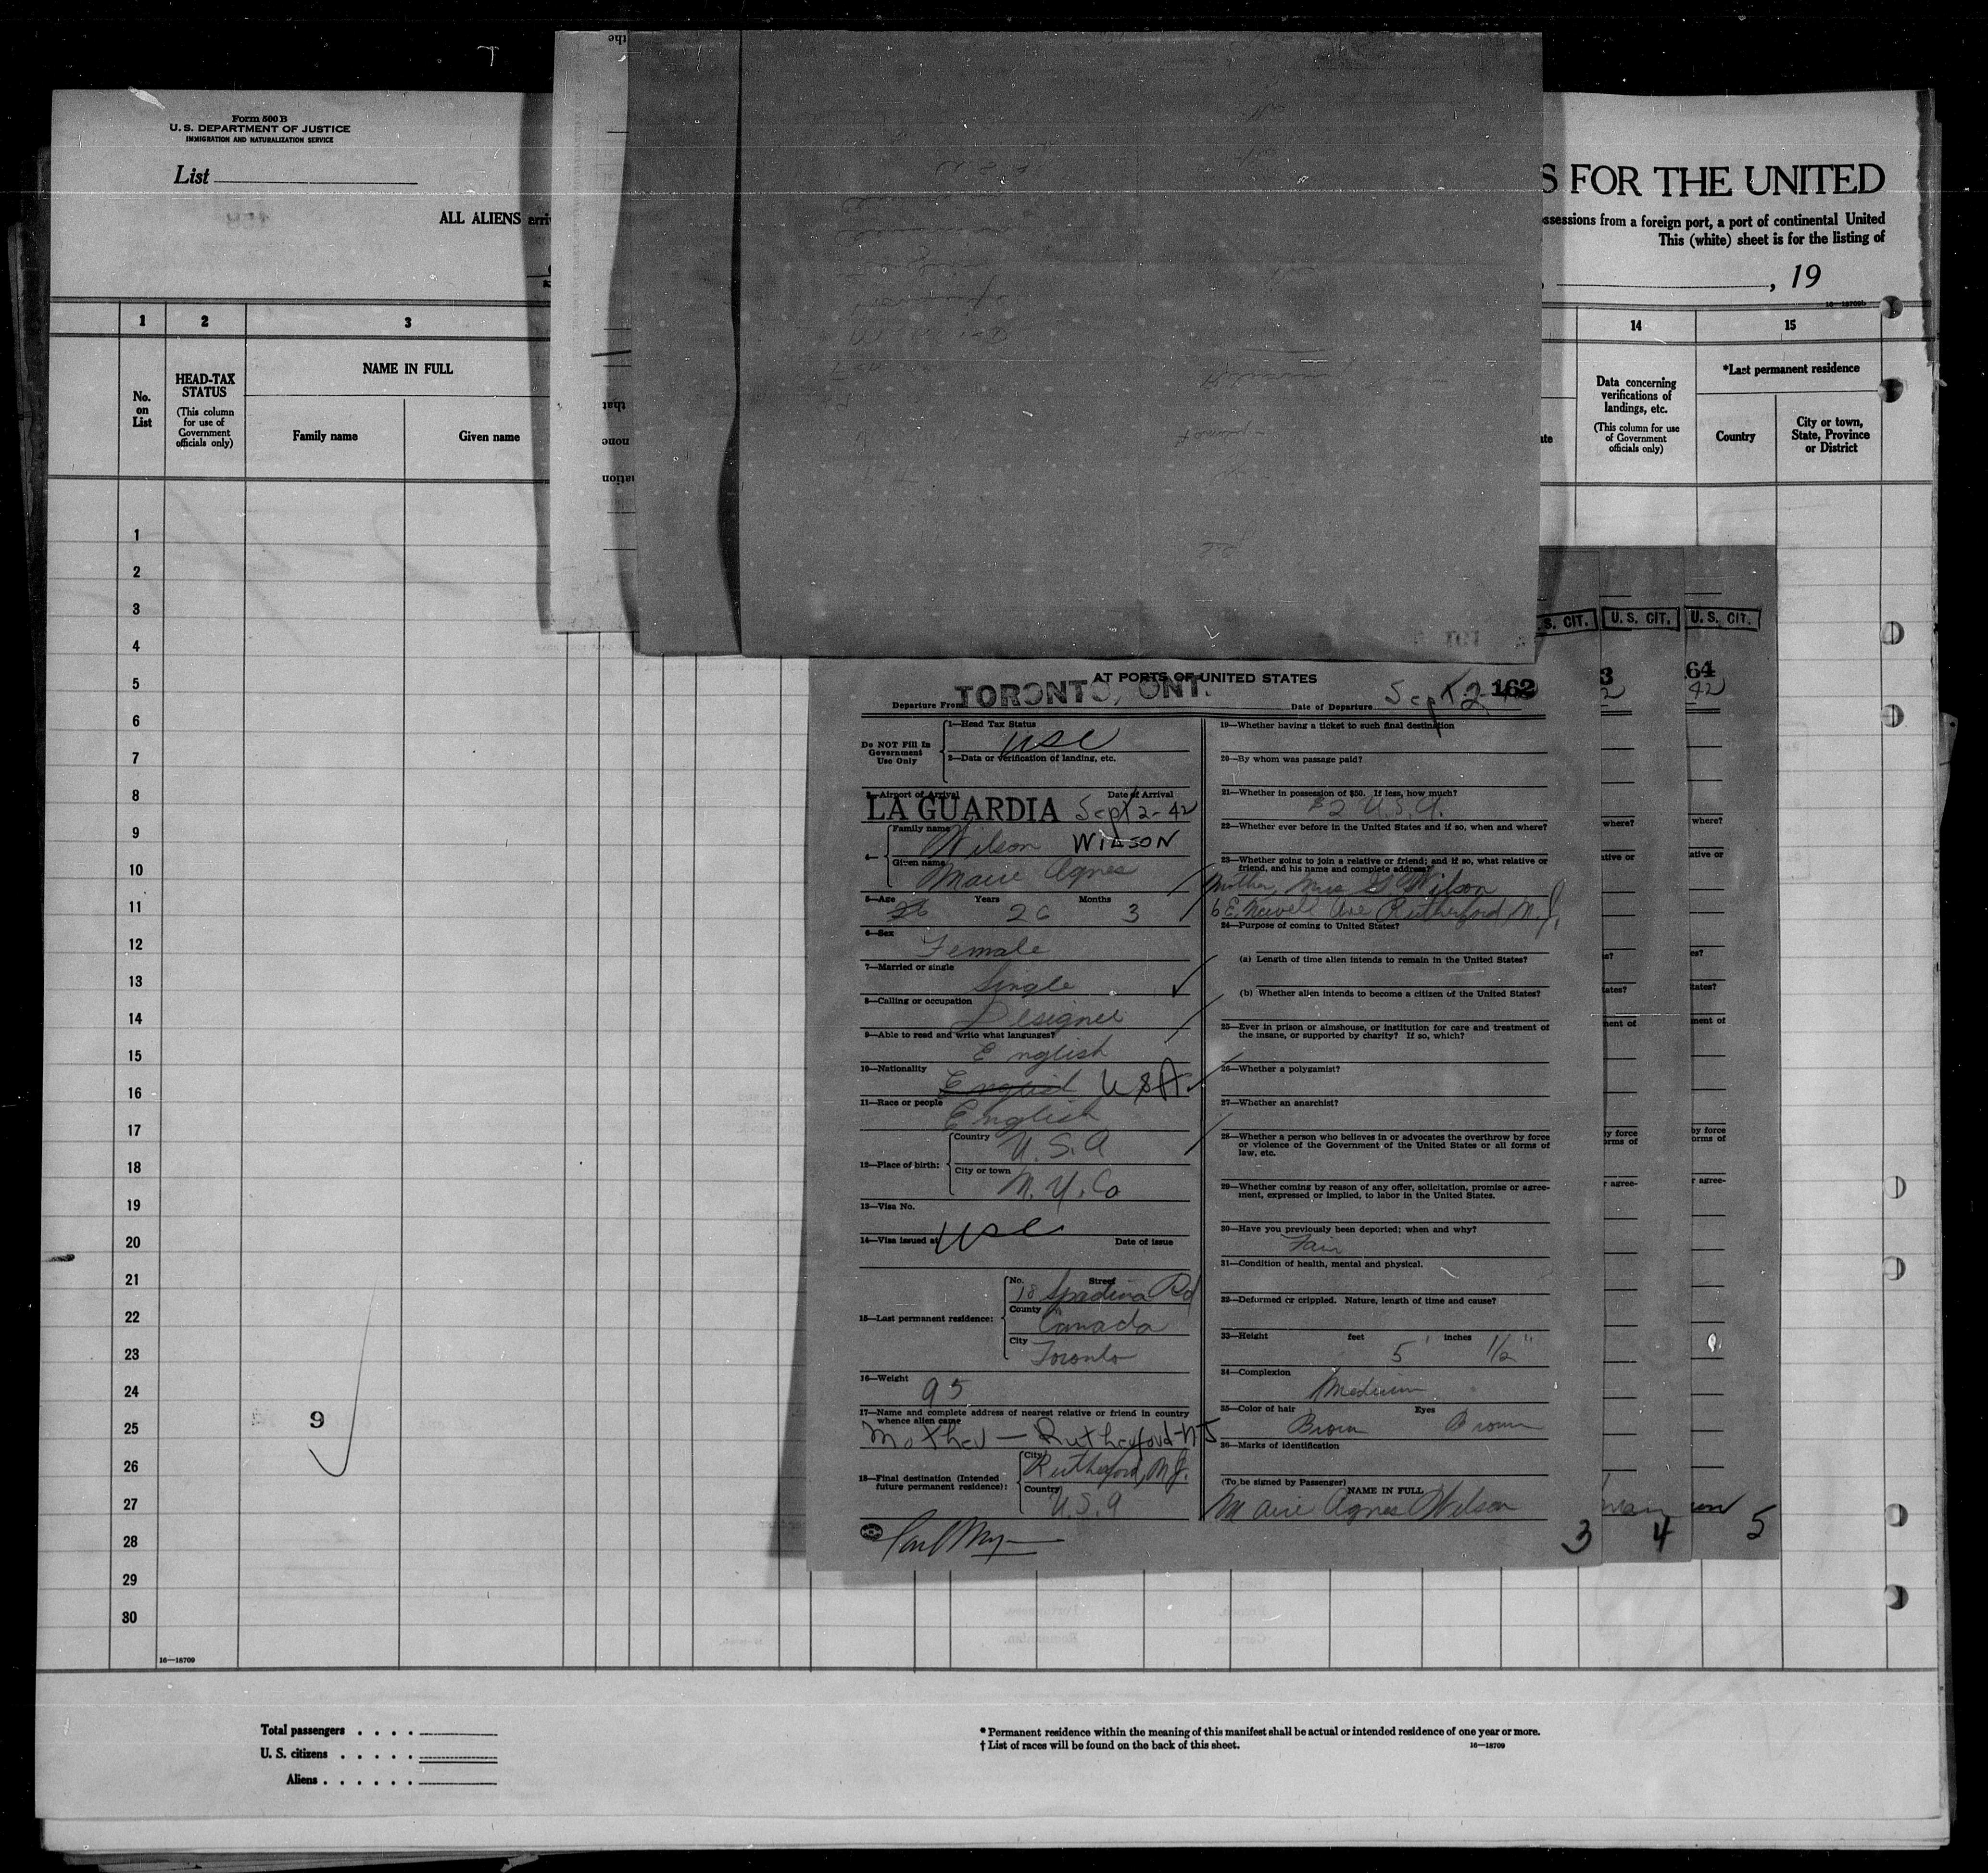 Form 500 B
U. S. DEPARTMENT OF JUSTICE
IMMIGRATION AND NATURALIZATION SERVICE
List
ALL ALIENS
S FOR THE UNITED
ssessions from a foreign port, a port of continental United
This (white) sheet is for the listing of
, 19
1 2 3 14 15
No. on List
HEAD-TAX STATUS
(This column for use of Government officials only)
NAME IN FULL
Family name
Given name
Data concerning verifications of landings, etc.
(This column for use of Government officials only)
*Last permanent residence
Country
City or town, State, Province or District
1
2
3
4
5
6
7
8
9
10
11
12
13
14
15
16
17
18
19
20
21
22
23
24
25
26
27
28
29
30
9
16—18709
Total passengers . . . .
U. S. citizens . . . . .
Aliens . . . . . .
* Permanent residence within the meaning of this manifest shall be actual or intended residence of one year or more.
† List of races will be found on the back of this sheet.
16—18709
S. CIT.
U. S. CIT.
U. S. CIT.
AT PORTS OF UNITED STATES
Departure From TORONTO, ONT.
Date of Departure Sept 2 162
Do NOT Fill In Government Use Only
1—Head Tax Status
USC
2—Data or verification of landing, etc.
3—Airport of Arrival Date of Arrival
LA GUARDIA Sept 2-42
4— Family name Wilson WILSON
Given name Marie Agnes
5—Age 26 Years 26 Months 3
6—Sex
Female
7—Married or single
Single
8—Calling or occupation
Designer
9—Able to read and write what languages?
English
10—Nationality
English USA
11—Race or people
English
12—Place of birth: Country U.S.A
City or town N.Y.Co
13—Visa No.
14—Visa issued at USC Date of issue
15—Last permanent residence: No. Street 18 Spadina Rd
County Canada
City Toronto
16—Weight
95
17—Name and complete address of nearest relative or friend in country whence alien came
Mother — Rutherford-NJ
18—Final destination (Intended future permanent residence): City Rutherford, N.J.
Country U.S.A
19—Whether having a ticket to such final destination
20—By whom was passage paid?
21—Whether in possession of $50. If less, how much?
$2 U.S.A.
22—Whether ever before in the United States and if so, when and where?
23—Whether going to join a relative or friend; and if so, what relative or friend, and his name and complete address?
Mother, Mrs G Wilson
6 E. Newell Ave Rutherford, N.J.
24—Purpose of coming to United States?
(a) Length of time alien intends to remain in the United States?
(b) Whether alien intends to become a citizen of the United States?
25—Ever in prison or almshouse, or institution for care and treatment of the insane, or supported by charity? If so, which?
26—Whether a polygamist?
27—Whether an anarchist?
28—Whether a person who believes in or advocates the overthrow by force or violence of the Government of the United States or all forms of law, etc.
29—Whether coming by reason of any offer, solicitation, promise or agreement, expressed or implied, to labor in the United States.
30—Have you previously been deported; when and why?
Fair
31—Condition of health, mental and physical.
32—Deformed or crippled. Nature, length of time and cause?
33—Height feet inches
5' 1/2"
34—Complexion
Medium
35—Color of hair Eyes
Brown Brown
36—Marks of identification
(To be signed by Passenger) NAME IN FULL
Marie Agnes Wilson
3 4 5